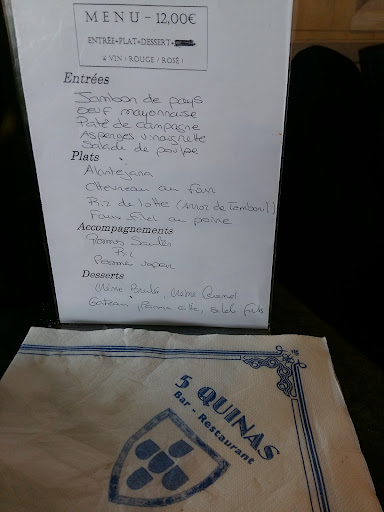 MENU - 12,00€
ENTRÉE+PLAT+DESSERT+
& VIN ( ROUGE / ROSÉ )
Entrées
Jambon de pays
Oeuf mayonnaise
Paté de campagne
Asperges vinaigrette
Salade de poulpe
Plats
Alentejana
Chevreau au four
Riz de lotte (Arroz de Tamboril)
Faux filet au poivre
Accompagnements
Pommes Sautés
Riz
Pomme vapeur
Desserts
Crème Brulé, Crème Caramel
Gateau, salade fruits
5 QUINAS
Bar - Restaurant